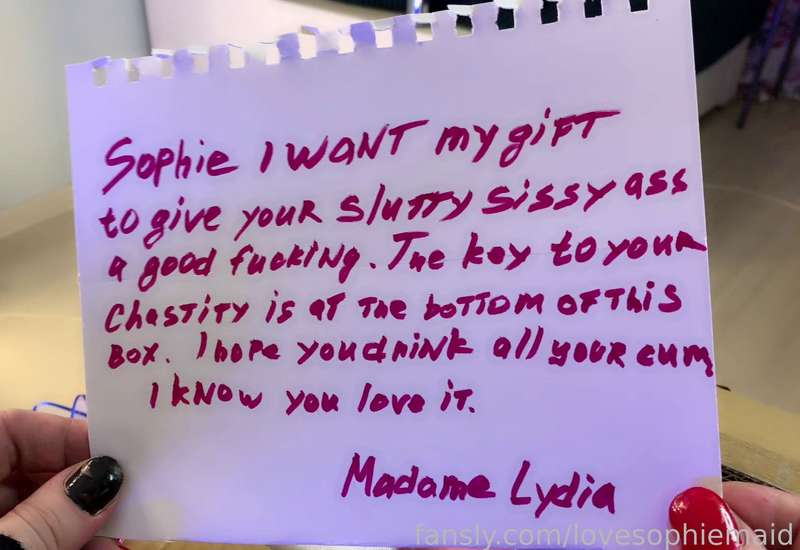 Sophie I WANT my gift
to give your slutty sissy ass
a good fucking. The key to your
chastity is at the bottom of this
Box. I hope you drink all your cum,
I know you love it.
Madame Lydia
fansly.com/lovesophiemaid